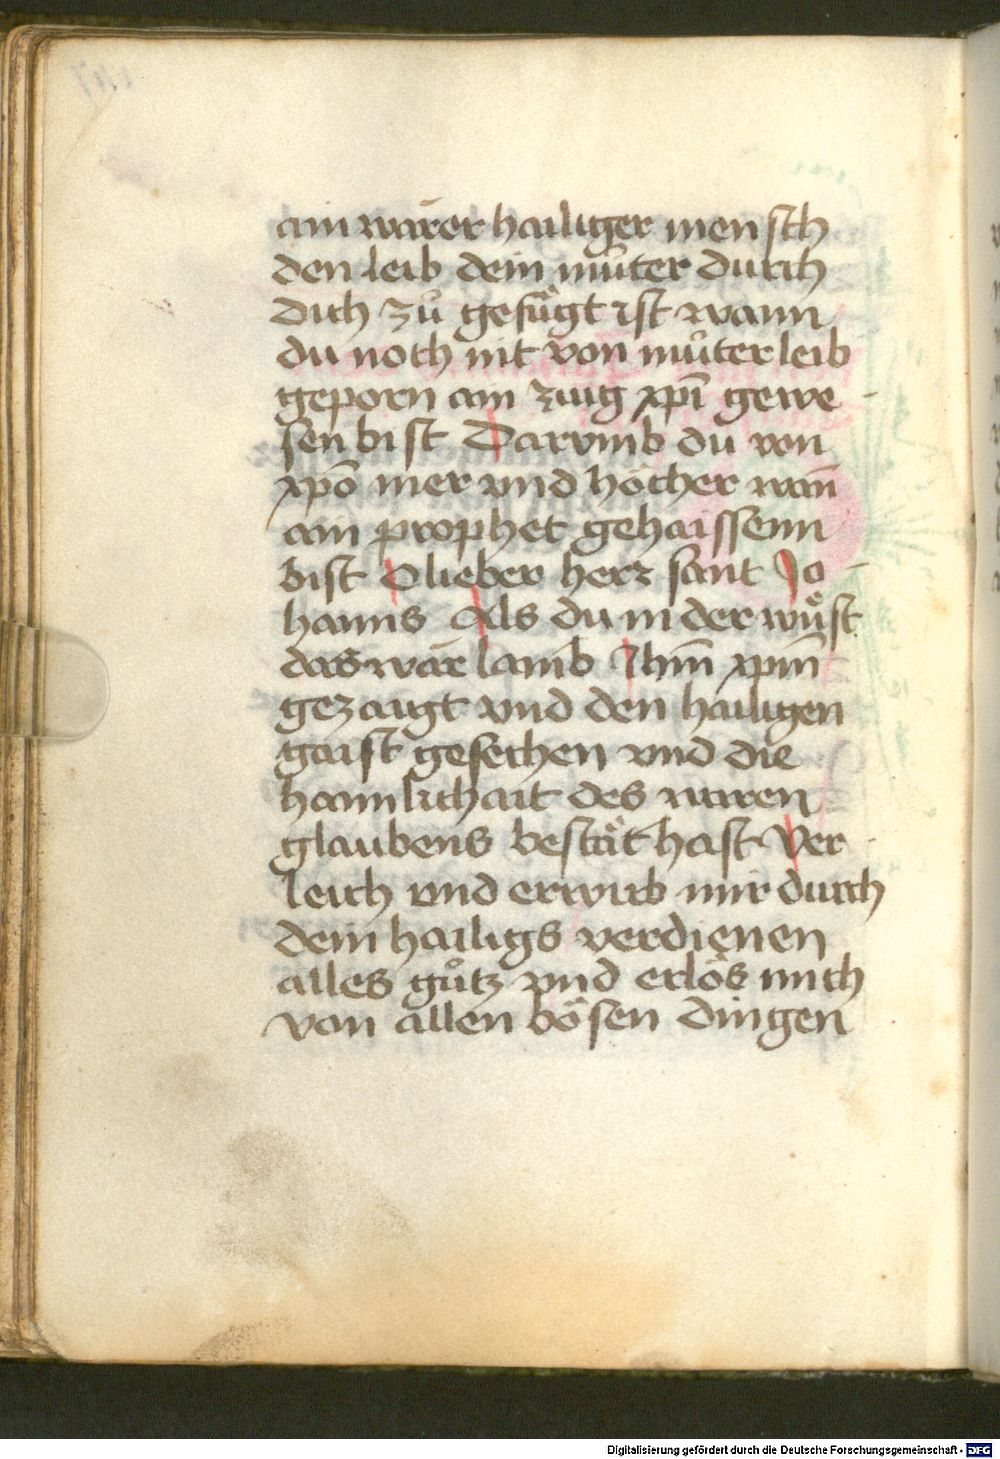 ain warer hailiger mensch
den leib dein můter durch
dich zů gefůgt ist wann
du noch nit von můter leib
geporn ain zuig xpi̅ gewe
sen bist Darvmb du von
xpo̅ mer vnd höcher wan̅
ain prophet gehaissenn
bist O lieber herz sant Jo
hanns Als du in der wůst
das war lamb Jhm̅ xpm̅
gezaigt vnd den hailigen
gaist gesechen vnd die
haimlichait des waren
glaubens bestät hast Ver
leich vnd erwirb mir durch
dein hailigs verdienen
alles gůtz vnd erlös mich
von allen bösen dingen
Digitalisierung gefördert durch die Deutsche Forschungsgemeinschaft - DFG